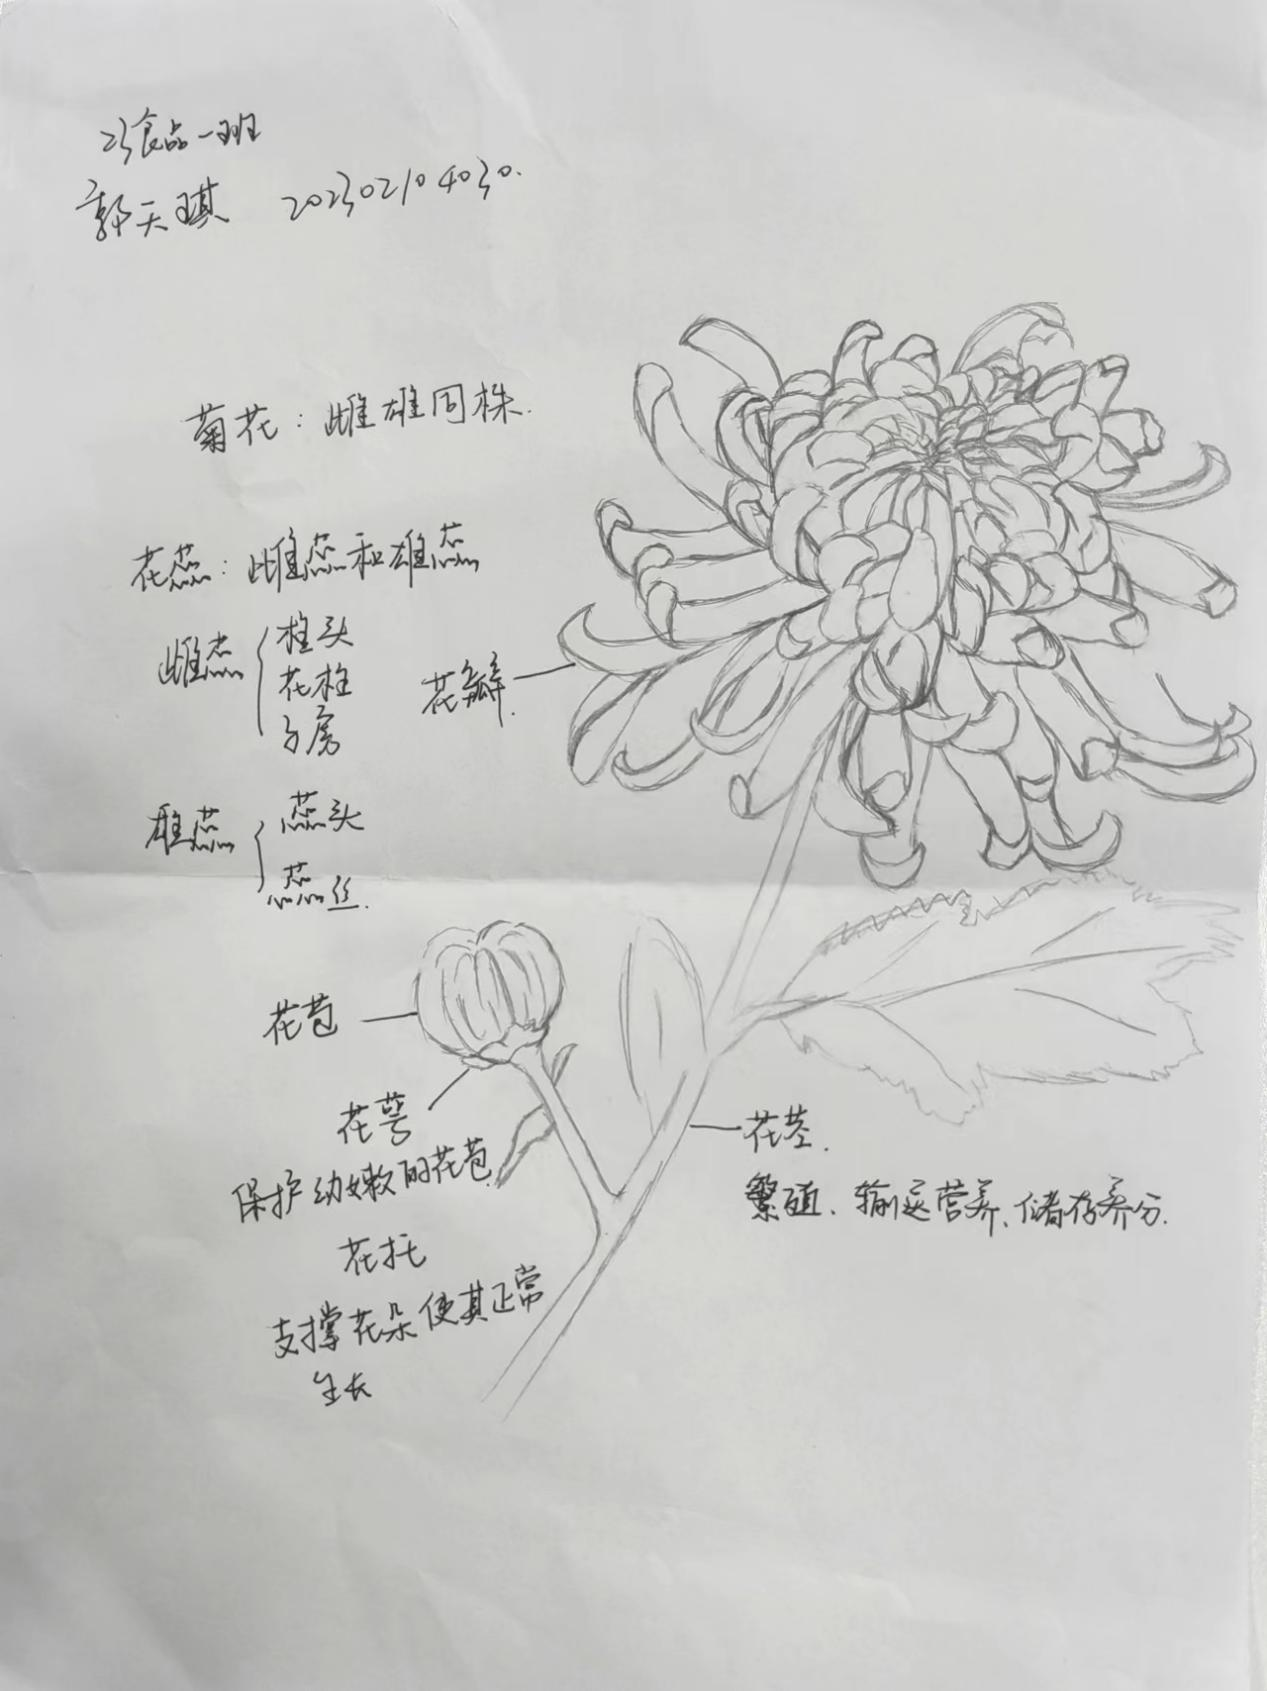 23食品一班
郭天琪 202302104030.
菊花：雌雄同株.
花蕊：雌蕊和雄蕊
雌蕊{柱头
花柱
子房
花瓣.
雄蕊{蕊头
蕊丝.
花苞
花萼
保护幼嫩的花苞.
花托
支撑花朵使其正常
生长
花茎.
繁殖、输送营养、储存养分.